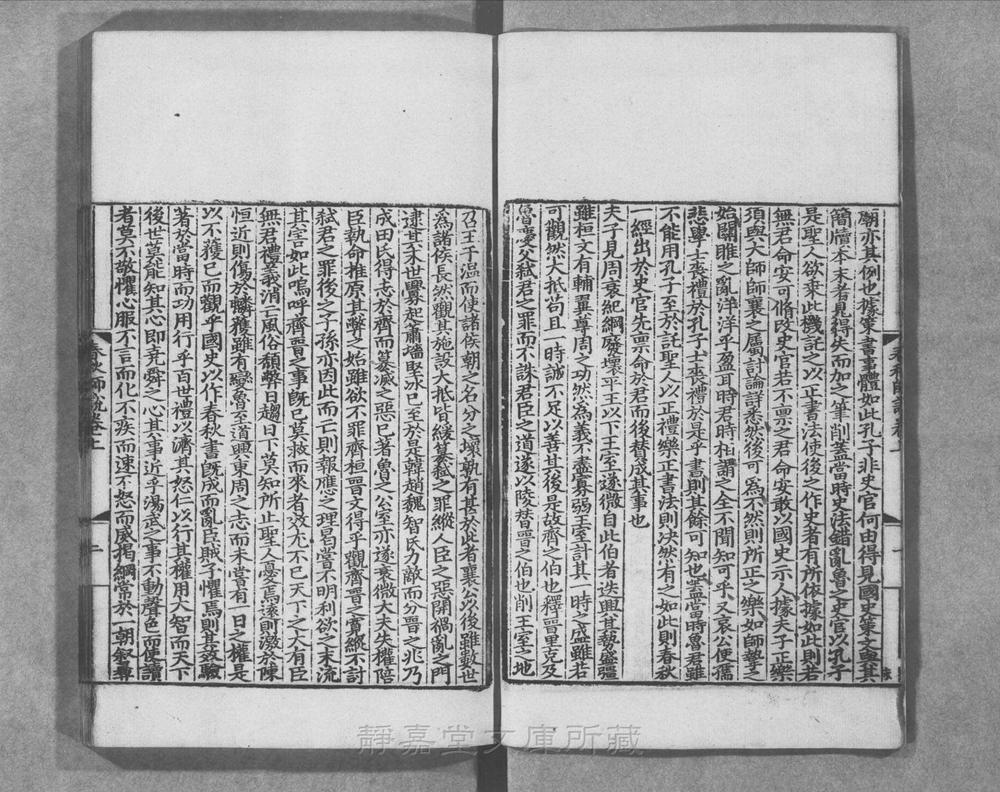 廟亦其例也據策書事體如此孔子非史官何由得見國史策文與其
簡牘本末考見得失而加之筆削蓋當時史法錯亂魯之史官以孔子
是聖人欲乘此機託之以正書法使後之作史者有所依據如此則若
無君命安可脩改史官若不禀之君命安敢以國史示人據夫子正樂
須與大師師襄之屬討論詳悉然後可爲不然則所正之樂如師摯之
始關雎之亂洋洋乎盈耳時君時相謂之全不聞知可乎又哀公使孺
悲學士喪禮於孔子士喪禮於是乎書則其餘可知也蓋當時魯君雖
不能用孔子至於託聖人以正禮樂正書法則决然有之如此則春秋
一經出於史官先禀命於君而後贊成其事也
夫子見周衰紀綱廢壞平王以下王室遂微自此伯者迭興其勢寖彊
雖桓文有輔翼尊周之功然爲義不盡寡弱王室計其一時之盛雖若
可觀然大抵苟且一時誠不足以善其後是故齊之伯也釋晉里克及
魯慶父弑君之罪而不誅君臣之道遂以陵替晉之伯也削王室之地
召王于温而使諸侯朝之名分之壞孰有甚於此者襄公以後雖數世
爲諸侯長然觀其施設大抵皆緩簒弑之罪縱人臣之惡開禍亂之門
逮其末世釁起蕭墻堅冰已至於是韓趙魏智氏力敵而分晉之兆乃
成田氏得志於齊而簒滅之惡已著魯之公室亦遂衰微大夫失權陪
臣執命推原其弊之始雖欲不罪齊桓晉文得乎觀齊晉之實縱不討
弑君之罪後之子孫亦因此而亡則報應之理曷嘗不明利欲之末流
其害如此嗚呼齊晉之事旣已莫救而來者效尤不已天下之大有臣
無君禮義消亡風俗頹弊日趨日下莫知所止聖人憂焉遠則激於陳
恒近則傷於麟獲雖有變魯至道興東周之志而未嘗有一日之權是
以不獲已而觀乎國史以作春秋書旣成而亂臣賊子懼焉則其效驗
著於當時而功用行乎百世禮以濟其怒仁以行其權用大智而天下
後世莫能知其心即堯舜之心其事近乎湯武之事不動聲色而使讀
者莫不敬懼心服不言而化不疾而速不怒而威揭綱常於一朝叙彝
春秋師說卷上
二
靜嘉堂文庫所藏